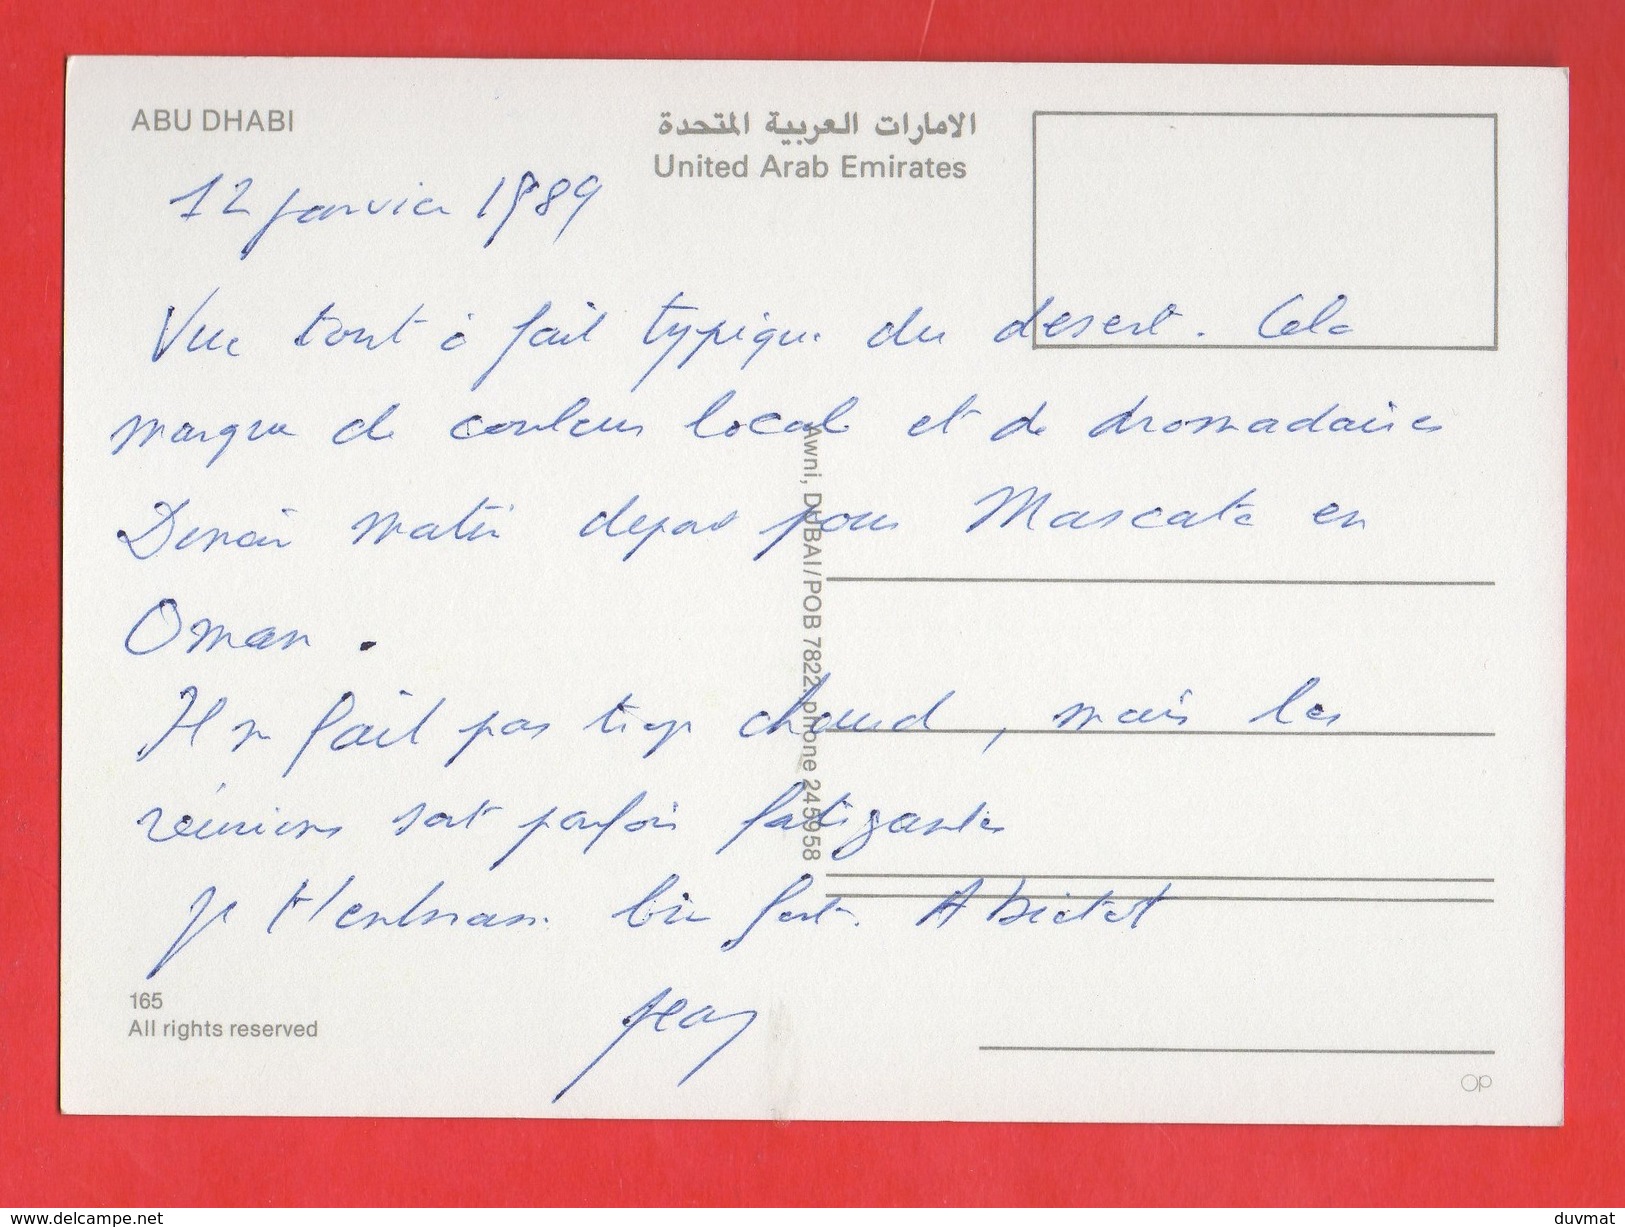 ABU DHABI
الامارات العربية المتحدة
United Arab Emirates
12 janvier 1989
Vue tout à fait typique du desert. Cela
manque de couleur locale et de dromadaires
Demain matin depart pour Mascate en
Oman.
Il ne fait pas trop chaud, mais les
réunions sont parfois fatigantes
Je t'embrasse bien fort. A bientot
Jean
Awni, DUBAI/POB 7822. phone 245958
165
All rights reserved
OP
www.delcampe.net
duvmat